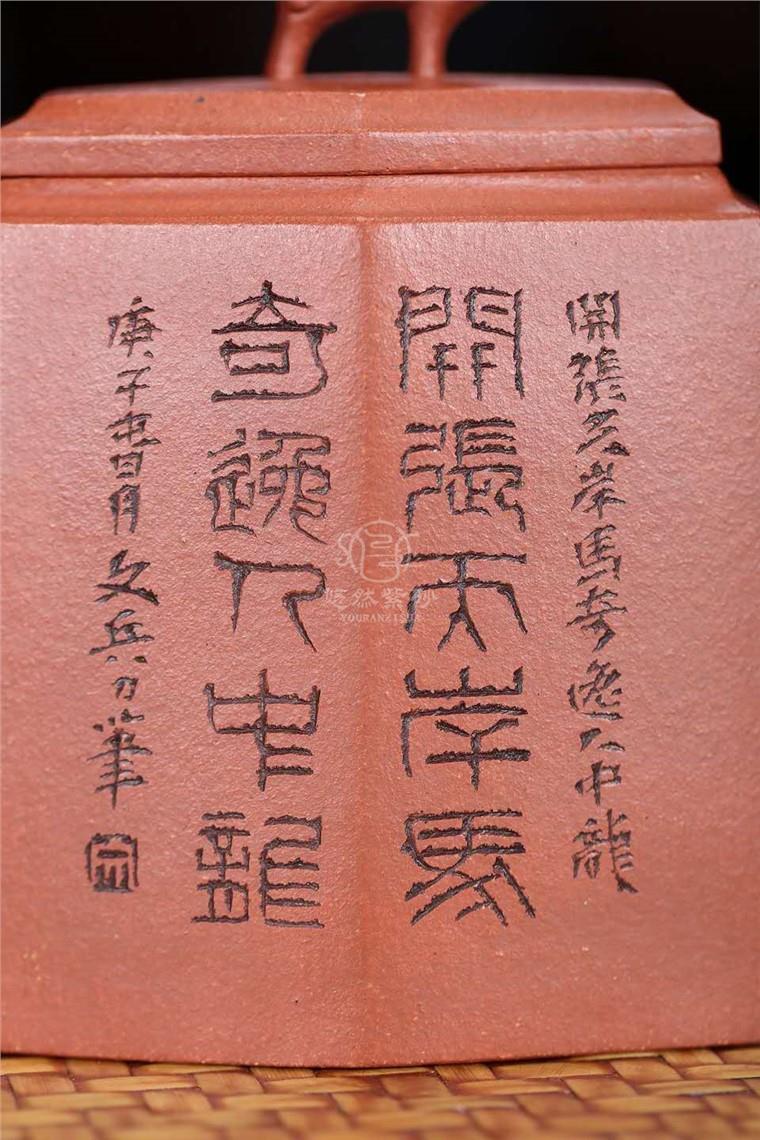 開張天岸馬奇逸人中龍
開張天岸馬
奇逸人中龍
庚子春月文兵刀筆
悠然紫砂